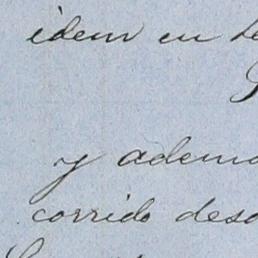 idem en
y adema
corrido desd